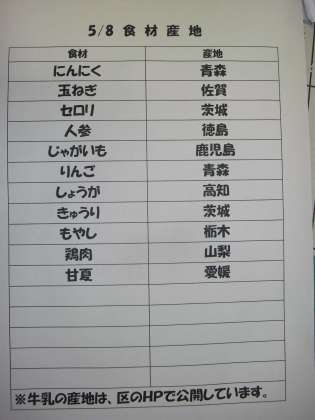 5/8 食材産地
食材 産地
にんにく 青森
玉ねぎ 佐賀
セロリ 茨城
人参 徳島
じゃがいも 鹿児島
りんご 青森
しょうが 高知
きゅうり 茨城
もやし 栃木
鶏肉 山梨
甘夏 愛媛
※牛乳の産地は、区のHPで公開しています。